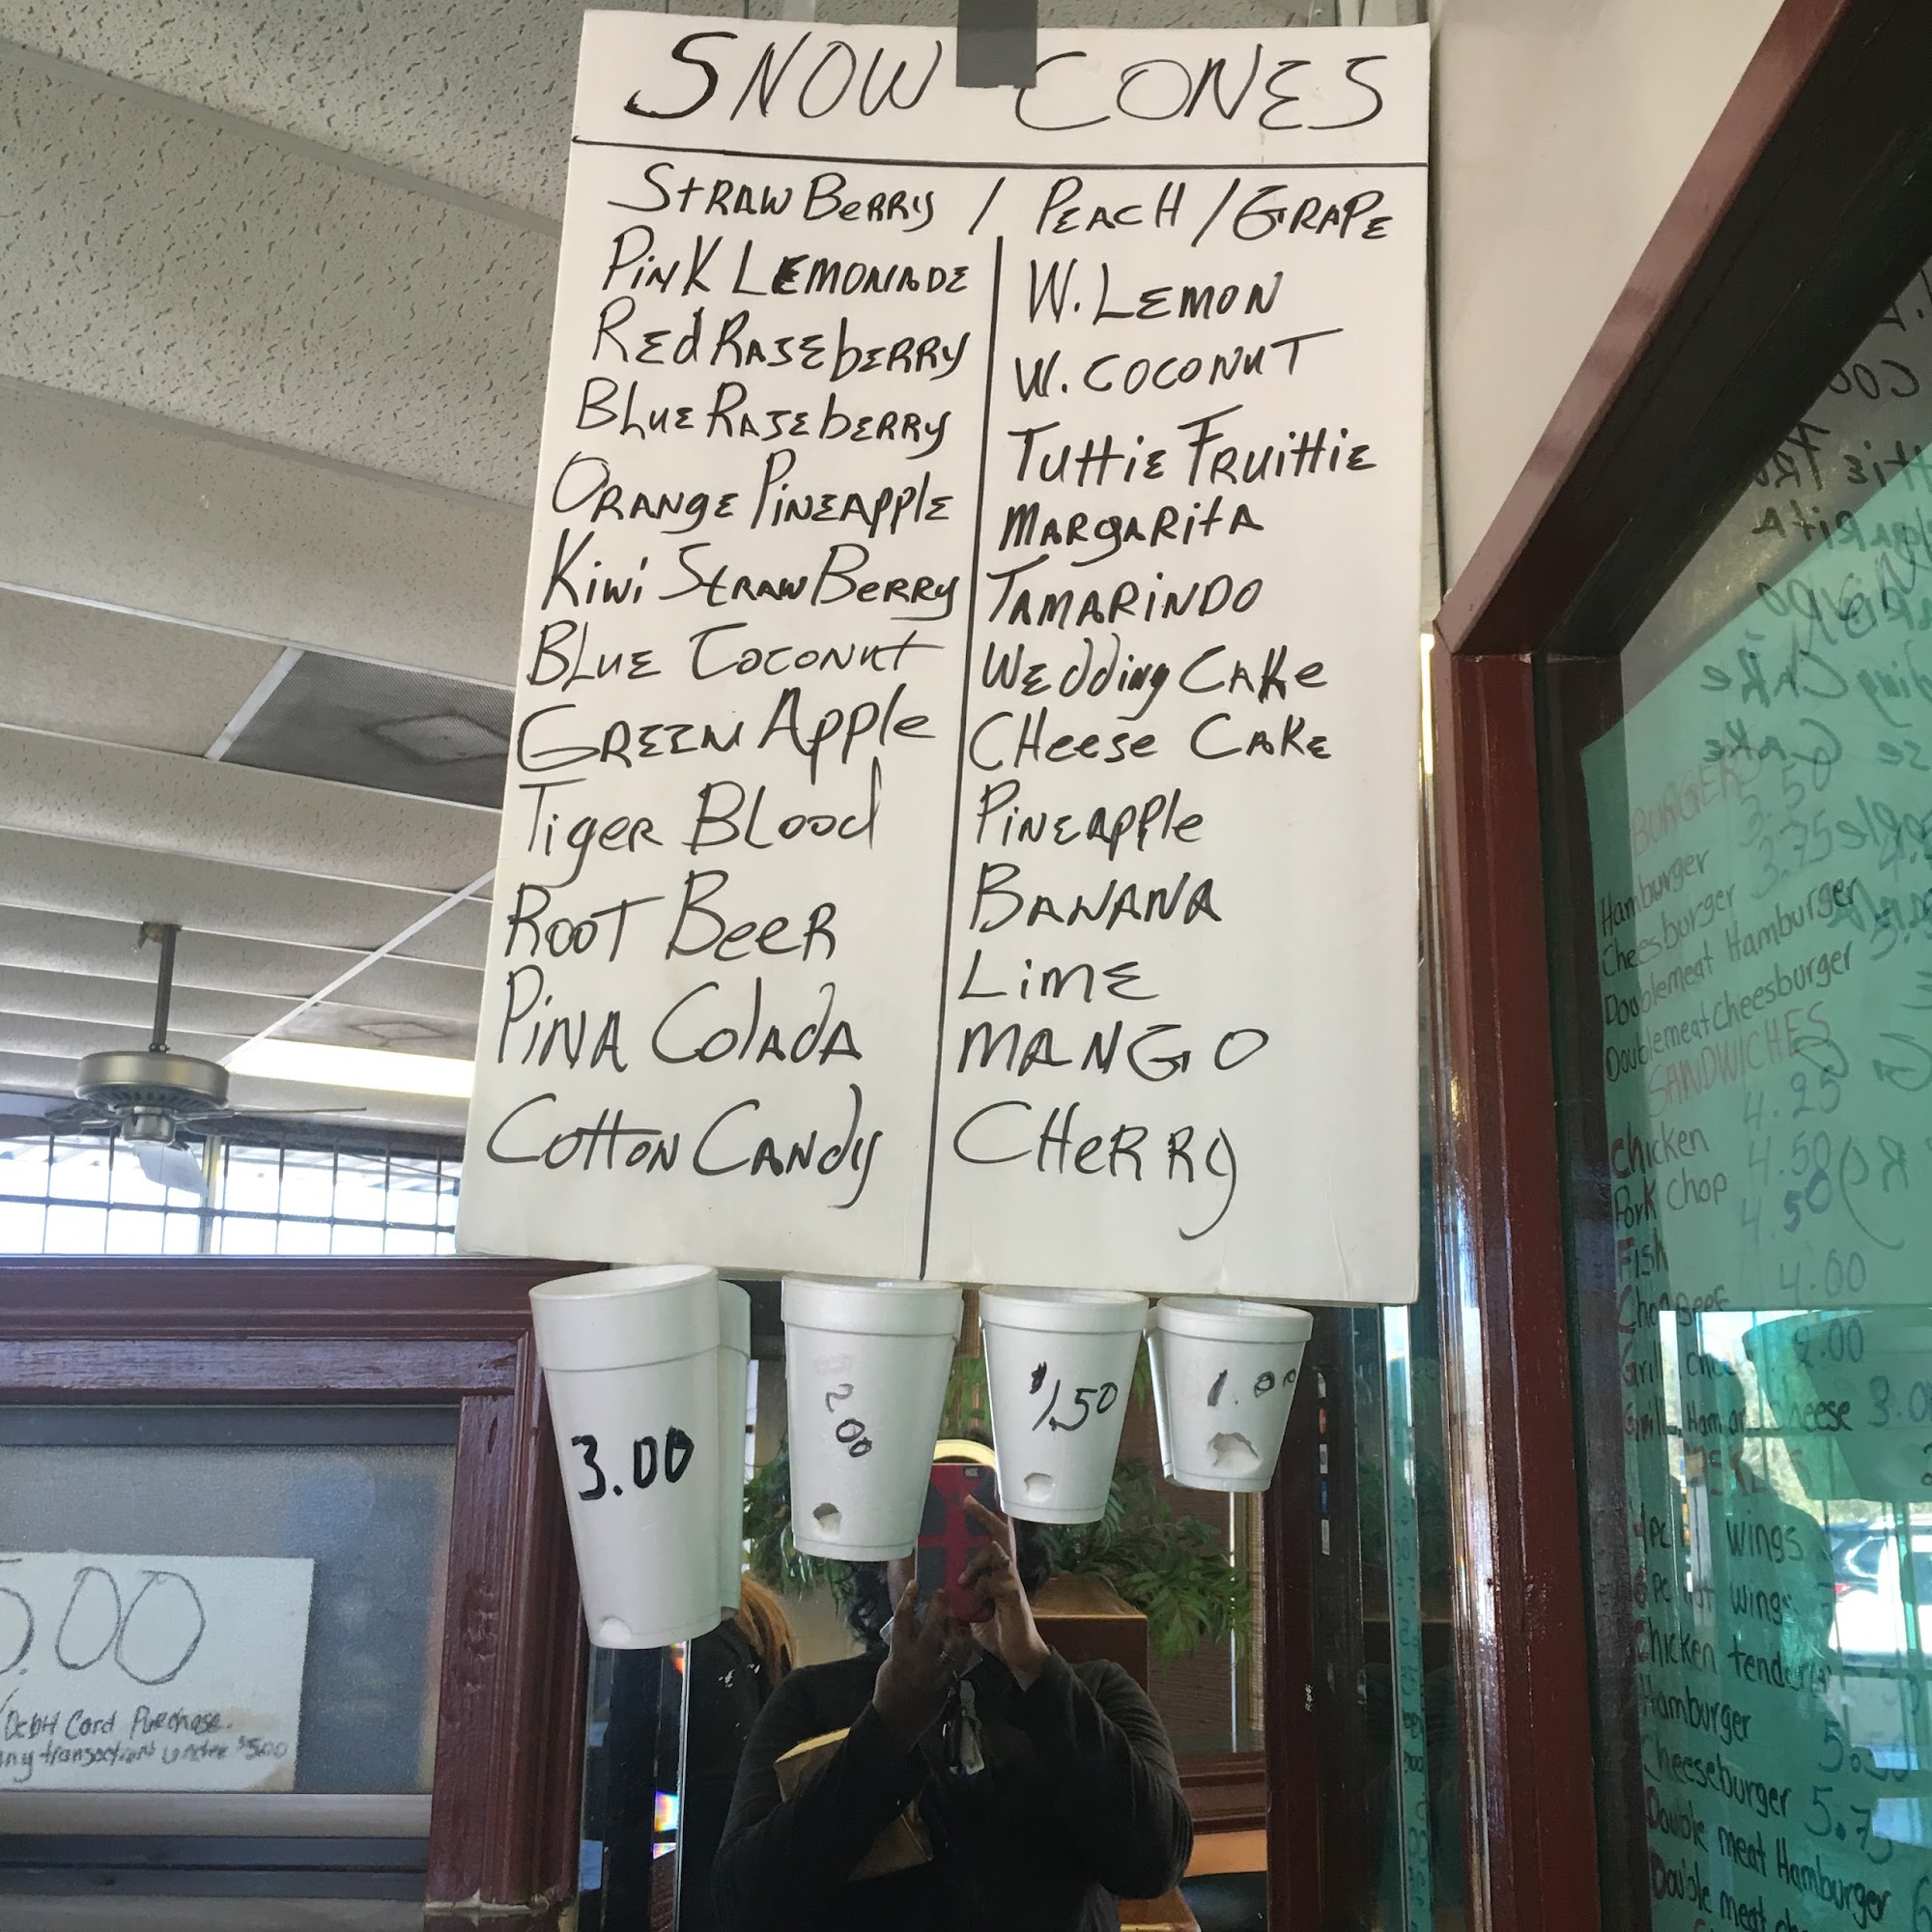 SNOW CONES
STRAWBERRY / PEACH / GRAPE
PINK LEMONADE
RED RASEBERRY
BLUE RASEBERRY
ORANGE PINEAPPLE
KIWI STRAWBERRY
BLUE COCONUT
GREEN APPLE
TIGER BLOOD
ROOT BEER
PINA COLADA
COTTON CANDY
W. LEMON
W. COCONUT
TUTTIE FRUITTIE
MARGARITA
TAMARINDO
WEDDING CAKE
CHEESE CAKE
PINEAPPLE
BANANA
LIME
MANGO
CHERRY
3.00
2 00
$1.50
1.00
5.00
Debit Card Purchase.
any transactions under $5.00
BURGERS
Hamburger 3.50
Cheesburger 3.75
Doublemeat Hamburger
Doublemeat Cheesburger
SANDWICHES
Chicken 4.25
Pork Chop 4.50
Fish 4.50
Chop Beef 4.00
Grill Cheese 2.00
Grill Ham or cheese 3.0
wings
6pc hot wings
Chicken tender
Hamburger
Cheeseburger 5.75
Double meat Hamburger
Double meat